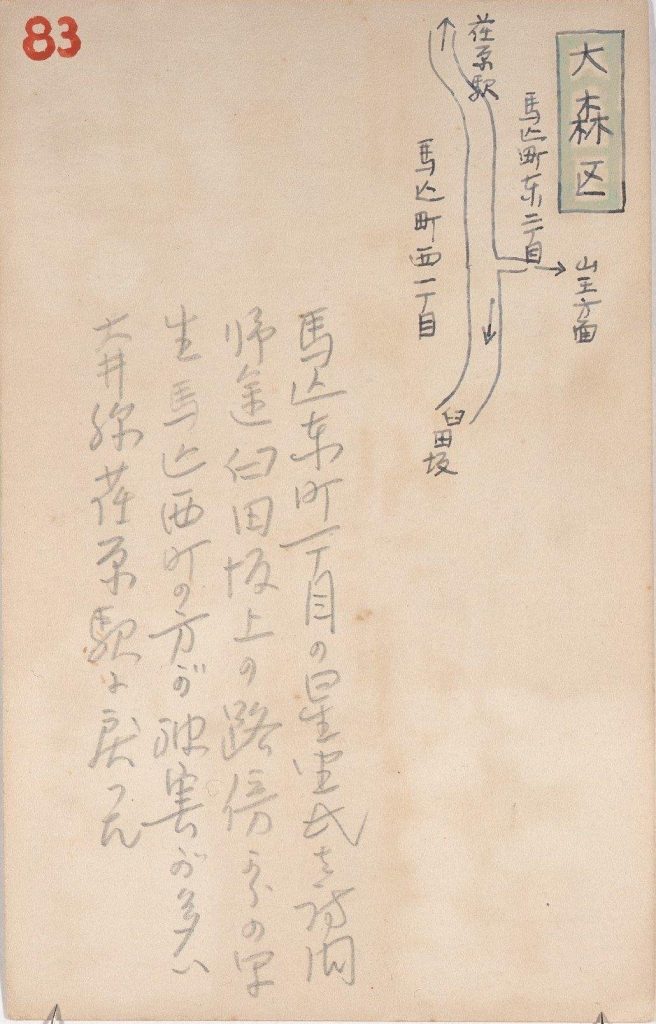 83
大森区
山王方面
馬込町東二丁目
荏原駅
馬込町西一丁目
臼田坂
馬込東町一丁目の星 氏を訪問
帰途臼田坂上の路傍 の写
生馬込西町の方が被害が多い
大井線荏原駅に戻った